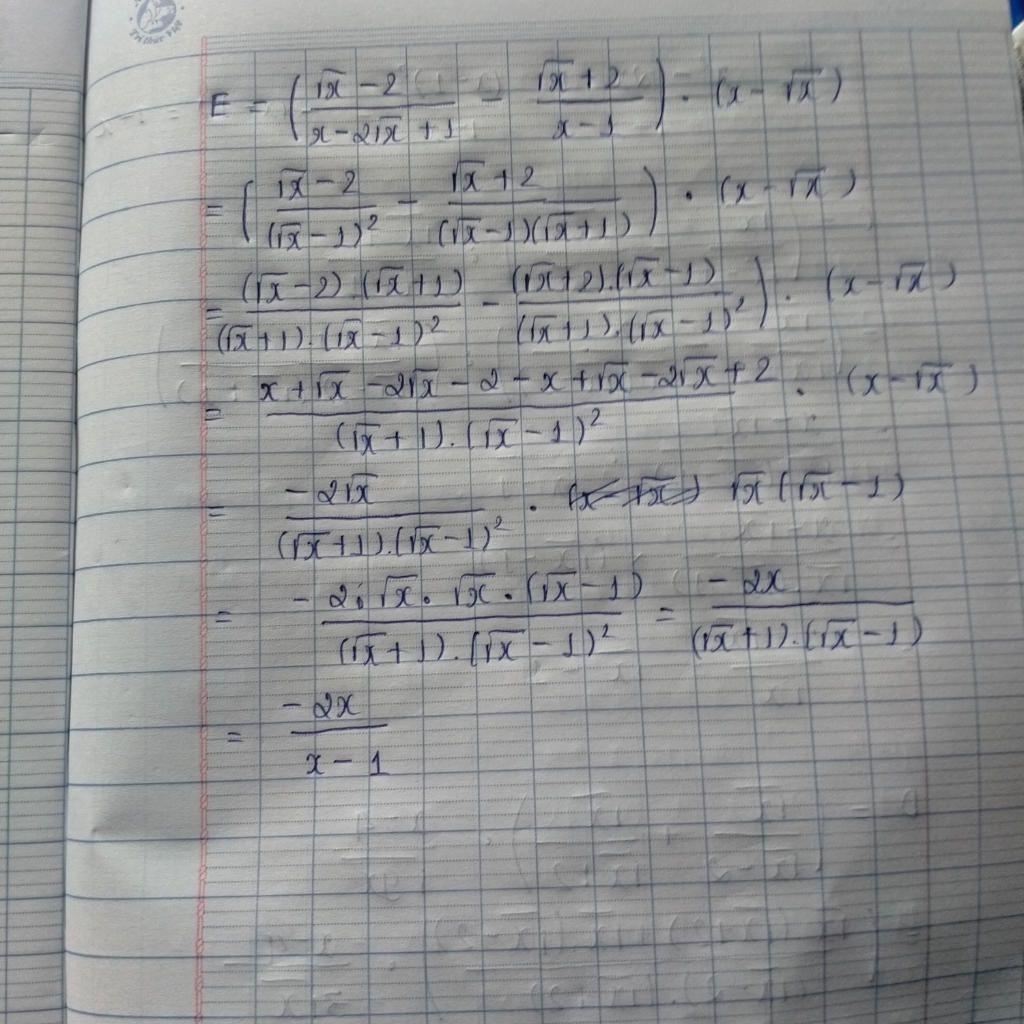 Trí thức Việt
E = ( (√x − 2)/(x − 2√x + 1) − (√x + 2)/(x − 1) ) . (x − √x)
= ( (√x − 2)/(√x − 1)² − (√x + 2)/((√x − 1)(√x + 1)) ) . (x − √x)
= (√x − 2).(√x + 1)/((√x + 1).(√x − 1)²) − (√x + 2).(√x − 1)/((√x + 1).(√x − 1)²) ) . (x − √x)
= (x + √x − 2√x − 2 − x + √x − 2√x + 2)/((√x + 1).(√x − 1)²) . (x − √x)
= −2√x/((√x + 1).(√x − 1)²) . (x − √x) √x (√x − 1)
= −2.√x.√x.(√x − 1)/((√x + 1).(√x − 1)²) = −2x/((√x + 1).(√x − 1))
= −2x/(x − 1)